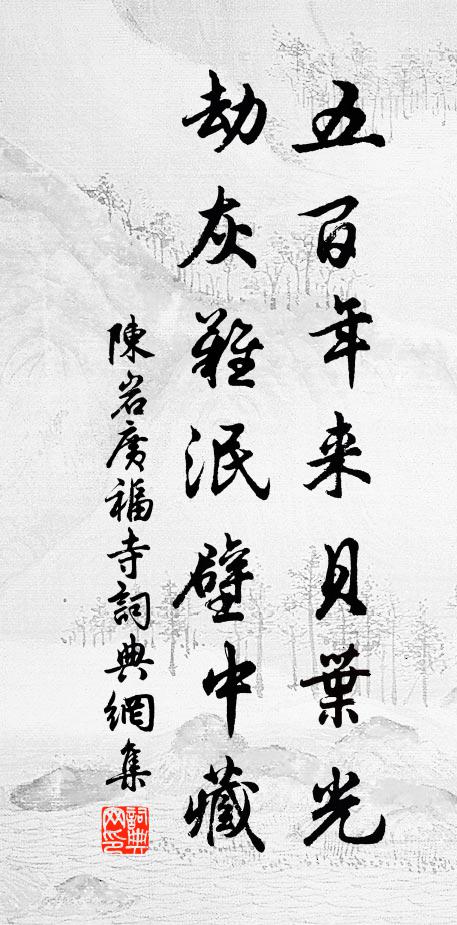 五百年来貝葉光
劫灰難泯壁中藏
陳岩廣福寺詞典網集
詞典網印